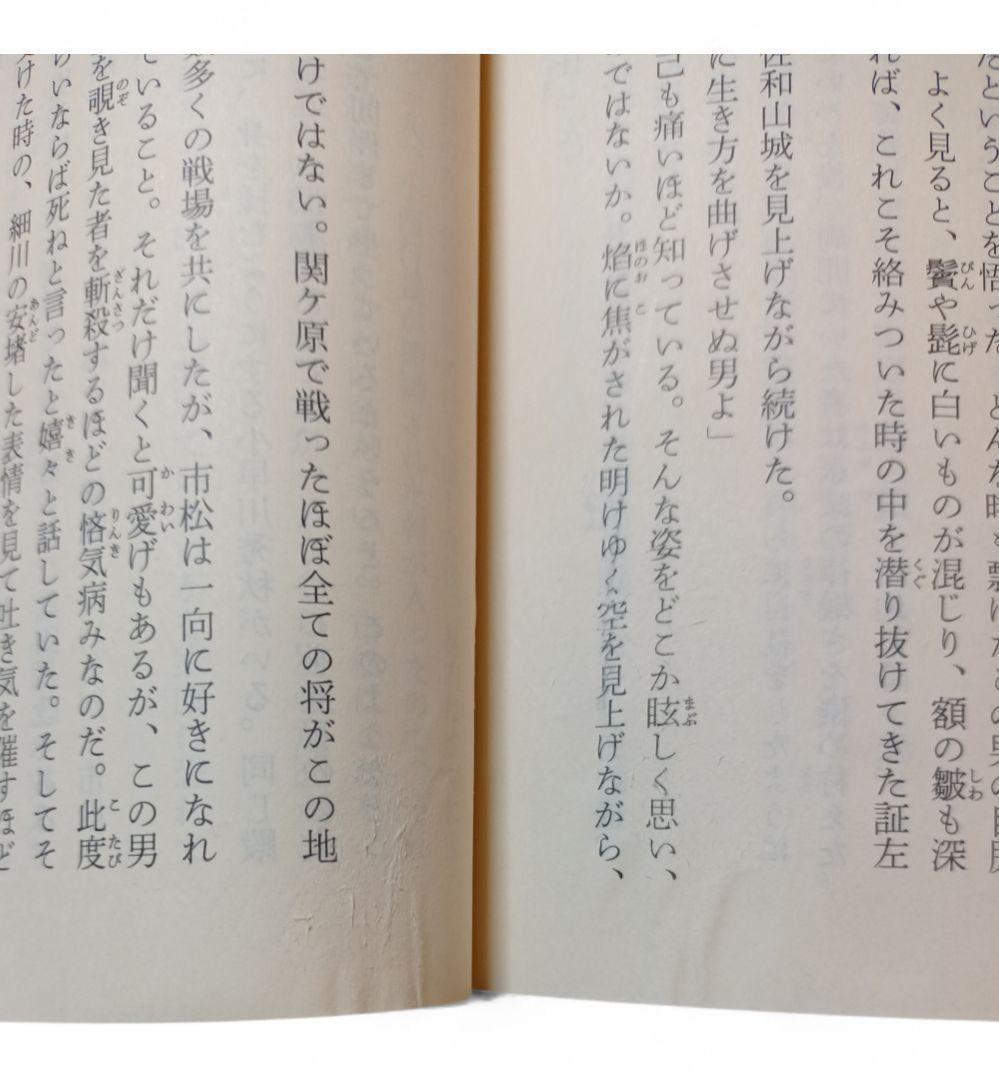 よく見ると、鬢や髭に白いものが混じり、額の皺も深
れば、これこそ絡みついた時の中を潜り抜けてきた証左
佐和山城を見上げながら続けた。
に生き方を曲げさせぬ男よ」
己も痛いほど知っている。そんな姿をどこか眩しく思い、
のではないか。焰に焦がされた明けゆく空を見上げながら、
けではない。関ヶ原で戦ったほぼ全ての将がこの地
多くの戦場を共にしたが、市松は一向に好きになれ
ていること。それだけ聞くと可愛げもあるが、この男
を覗き見た者を斬殺するほどの悋気病みなのだ。此度
らいならば死ねと言ったと嬉々と話していた。そしてそ
けた時の、細川の安堵した表情を見て吐き気を催すほど